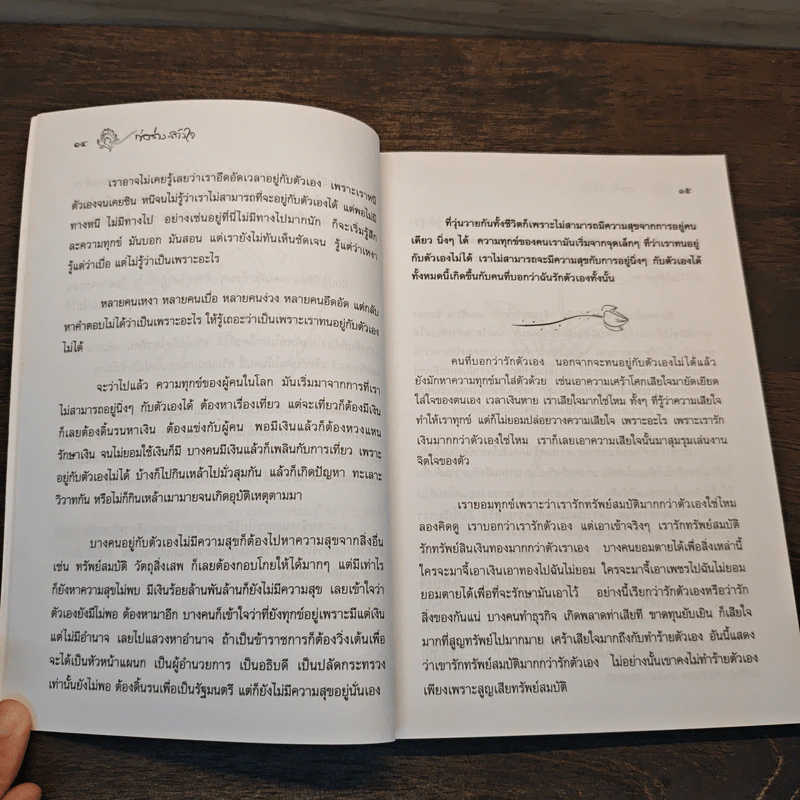 ๑๔
เราอาจไม่เคยรู้เลยว่าเราอึดอัดเวลาอยู่กับตัวเอง เพราะเราหนี
ตัวเองจนเคยชิน หนีจนไม่รู้ว่าเราไม่สามารถที่จะอยู่กับตัวเองได้ แต่พอไม่มี
ทางหนี ไม่มีทางไป อย่างเช่นอยู่ที่นี่ไม่มีทางไปมากนัก ก็จะเริ่มรู้สึก
ละความทุกข์ มันบอก มันสอน แต่เรายังไม่ทันเห็นชัดเจน รู้แต่ว่าเหงา
รู้แต่ว่าเบื่อ แต่ไม่รู้ว่าเป็นเพราะอะไร
หลายคนเหงา หลายคนเบื่อ หลายคนง่วง หลายคนอึดอัด แต่กลับ
หาคำตอบไม่ได้ว่าเป็นเพราะอะไร ให้รู้เถอะว่าเป็นเพราะเราทนอยู่กับตัวเอง
ไม่ได้
จะว่าไปแล้ว ความทุกข์ของผู้คนในโลก มันเริ่มมาจากการที่เรา
ไม่สามารถอยู่นิ่งๆ กับตัวเองได้ ต้องหาเรื่องเที่ยว แต่จะเที่ยวก็ต้องมีเงิน
ก็เลยต้องดิ้นรนหาเงิน ต้องแข่งกับผู้คน พอมีเงินแล้วก็ต้องหวงแหน
รักษาเงิน จนไม่ยอมใช้เงินก็มี บางคนมีเงินแล้วก็เพลินกับการเที่ยว เพราะ
อยู่กับตัวเองไม่ได้ บ้างก็ไปกินเหล้าไปมั่วสุมกัน แล้วก็เกิดปัญหา ทะเลาะ
วิวาทกัน หรือไม่ก็กินเหล้าเมามายจนเกิดอุบัติเหตุตามมา
บางคนอยู่กับตัวเองไม่มีความสุขก็ต้องไปหาความสุขจากสิ่งอื่น
เช่น ทรัพย์สมบัติ วัตถุสิ่งเสพ ก็เลยต้องกอบโกยให้ได้มากๆ แต่มีเท่าไร
ก็ยังหาความสุขไม่พบ มีเงินร้อยล้านพันล้านก็ยังไม่มีความสุข เลยเข้าใจว่า
ตัวเองยังมีไม่พอ ต้องหามาอีก บางคนก็เข้าใจว่าที่ยังทุกข์อยู่เพราะมีแต่เงิน
แต่ไม่มีอำนาจ เลยไปแสวงหาอำนาจ ถ้าเป็นข้าราชการก็ต้องวิ่งเต้นเพื่อ
จะได้เป็นหัวหน้าแผนก เป็นผู้อำนวยการ เป็นอธิบดี เป็นปลัดกระทรวง
เท่านั้นยังไม่พอ ต้องดิ้นรนเพื่อเป็นรัฐมนตรี แต่ก็ยังไม่มีความสุขอยู่นั่นเอง
๑๕
ที่วุ่นวายกันทั้งชีวิตก็เพราะไม่สามารถมีความสุขจากการอยู่คน
เดียว นิ่งๆ ได้ ความทุกข์ของคนเรามันเริ่มจากจุดเล็กๆ ที่ว่าเราทนอยู่
กับตัวเองไม่ได้ เราไม่สามารถจะมีความสุขกับการอยู่นิ่งๆ กับตัวเองได้
ทั้งหมดนี้เกิดขึ้นกับคนที่บอกว่าฉันรักตัวเองทั้งนั้น
คนที่บอกว่ารักตัวเอง นอกจากจะทนอยู่กับตัวเองไม่ได้แล้ว
ยังมักหาความทุกข์มาใส่ตัวด้วย เช่นเอาความเศร้าโศกเสียใจมายัดเยียด
ใส่ใจของตนเอง เวลาเงินหาย เราเสียใจมากใช่ไหม ทั้งๆ ที่รู้ว่าความเสียใจ
ทำให้เราทุกข์ แต่ก็ไม่ยอมปล่อยวางความเสียใจ เพราะอะไร เพราะเรารัก
เงินมากกว่าตัวเองใช่ไหม เราก็เลยเอาความเสียใจนั้นมาสุมรุมเล่นงาน
จิตใจของตัว
เรายอมทุกข์เพราะว่าเรารักทรัพย์สมบัติมากกว่าตัวเองใช่ไหม
ลองคิดดู เราบอกว่าเรารักตัวเอง แต่เอาเข้าจริงๆ เรารักทรัพย์สมบัติ
รักทรัพย์สินเงินทองมากกว่าตัวเราเอง บางคนยอมตายได้เพื่อสิ่งเหล่านี้
ใครจะมาจี้เอาเงินเอาทองไปฉันไม่ยอม ใครจะมาจี้เอาเพชรไปฉันไม่ยอม
ยอมตายได้เพื่อที่จะรักษามันเอาไว้ อย่างนี้เรียกว่ารักตัวเองหรือว่ารัก
สิ่งของกันแน่ บางคนทำธุรกิจ เกิดพลาดท่าเสียที ขาดทุนยับเยิน ก็เสียใจ
มากที่สูญทรัพย์ไปมากมาย เศร้าเสียใจมากถึงกับทำร้ายตัวเอง อันนี้แสดง
ว่าเขารักทรัพย์สมบัติมากกว่ารักตัวเอง ไม่อย่างนั้นเขาคงไม่ทำร้ายตัวเอง
เพียงเพราะสูญเสียทรัพย์สมบัติ